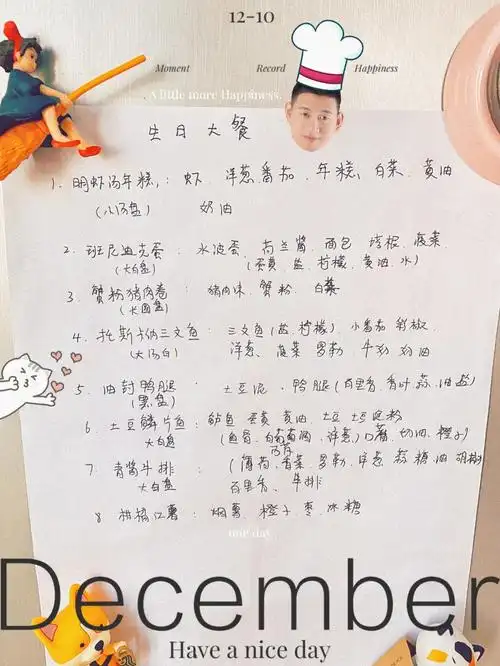 12-10
Moment Record Happiness
A little more Happiness.
生日大餐
1. 明虾汤年糕：虾、洋葱、番茄、年糕、白菜、黄油
(八汤盘) 奶油
2. 班尼迪克蛋：水波蛋、荷兰酱、面包、培根、菠菜
(大白盘) (蛋黄、盐、柠檬、黄油、水)
3. 蟹粉猪肉卷：猪肉末、蟹粉、白菜
(大圆盘)
4. 托斯卡纳三文鱼：三文鱼(盐、柠檬)、小番茄、彩椒
(大汤白) 洋葱、菠菜、罗勒、牛奶、奶油
5. 油封鸭腿：土豆泥、鸭腿(百里香、香叶、蒜、油、盐)
(黑盘)
6. 土豆鳞片鱼：鲈鱼、蛋黄、黄油、土豆、土豆淀粉
大白盘 (鱼骨、白葡萄酒、洋葱) 口蘑、奶油、橙子)
7. 青酱牛排：(薄荷、香菜、罗勒、洋葱、蒜、糖、油、胡椒)
大白盘 百里香、牛排
8. 柑橘红薯：烟薯、橙子、枣、冰糖
our day
December
Have a nice day